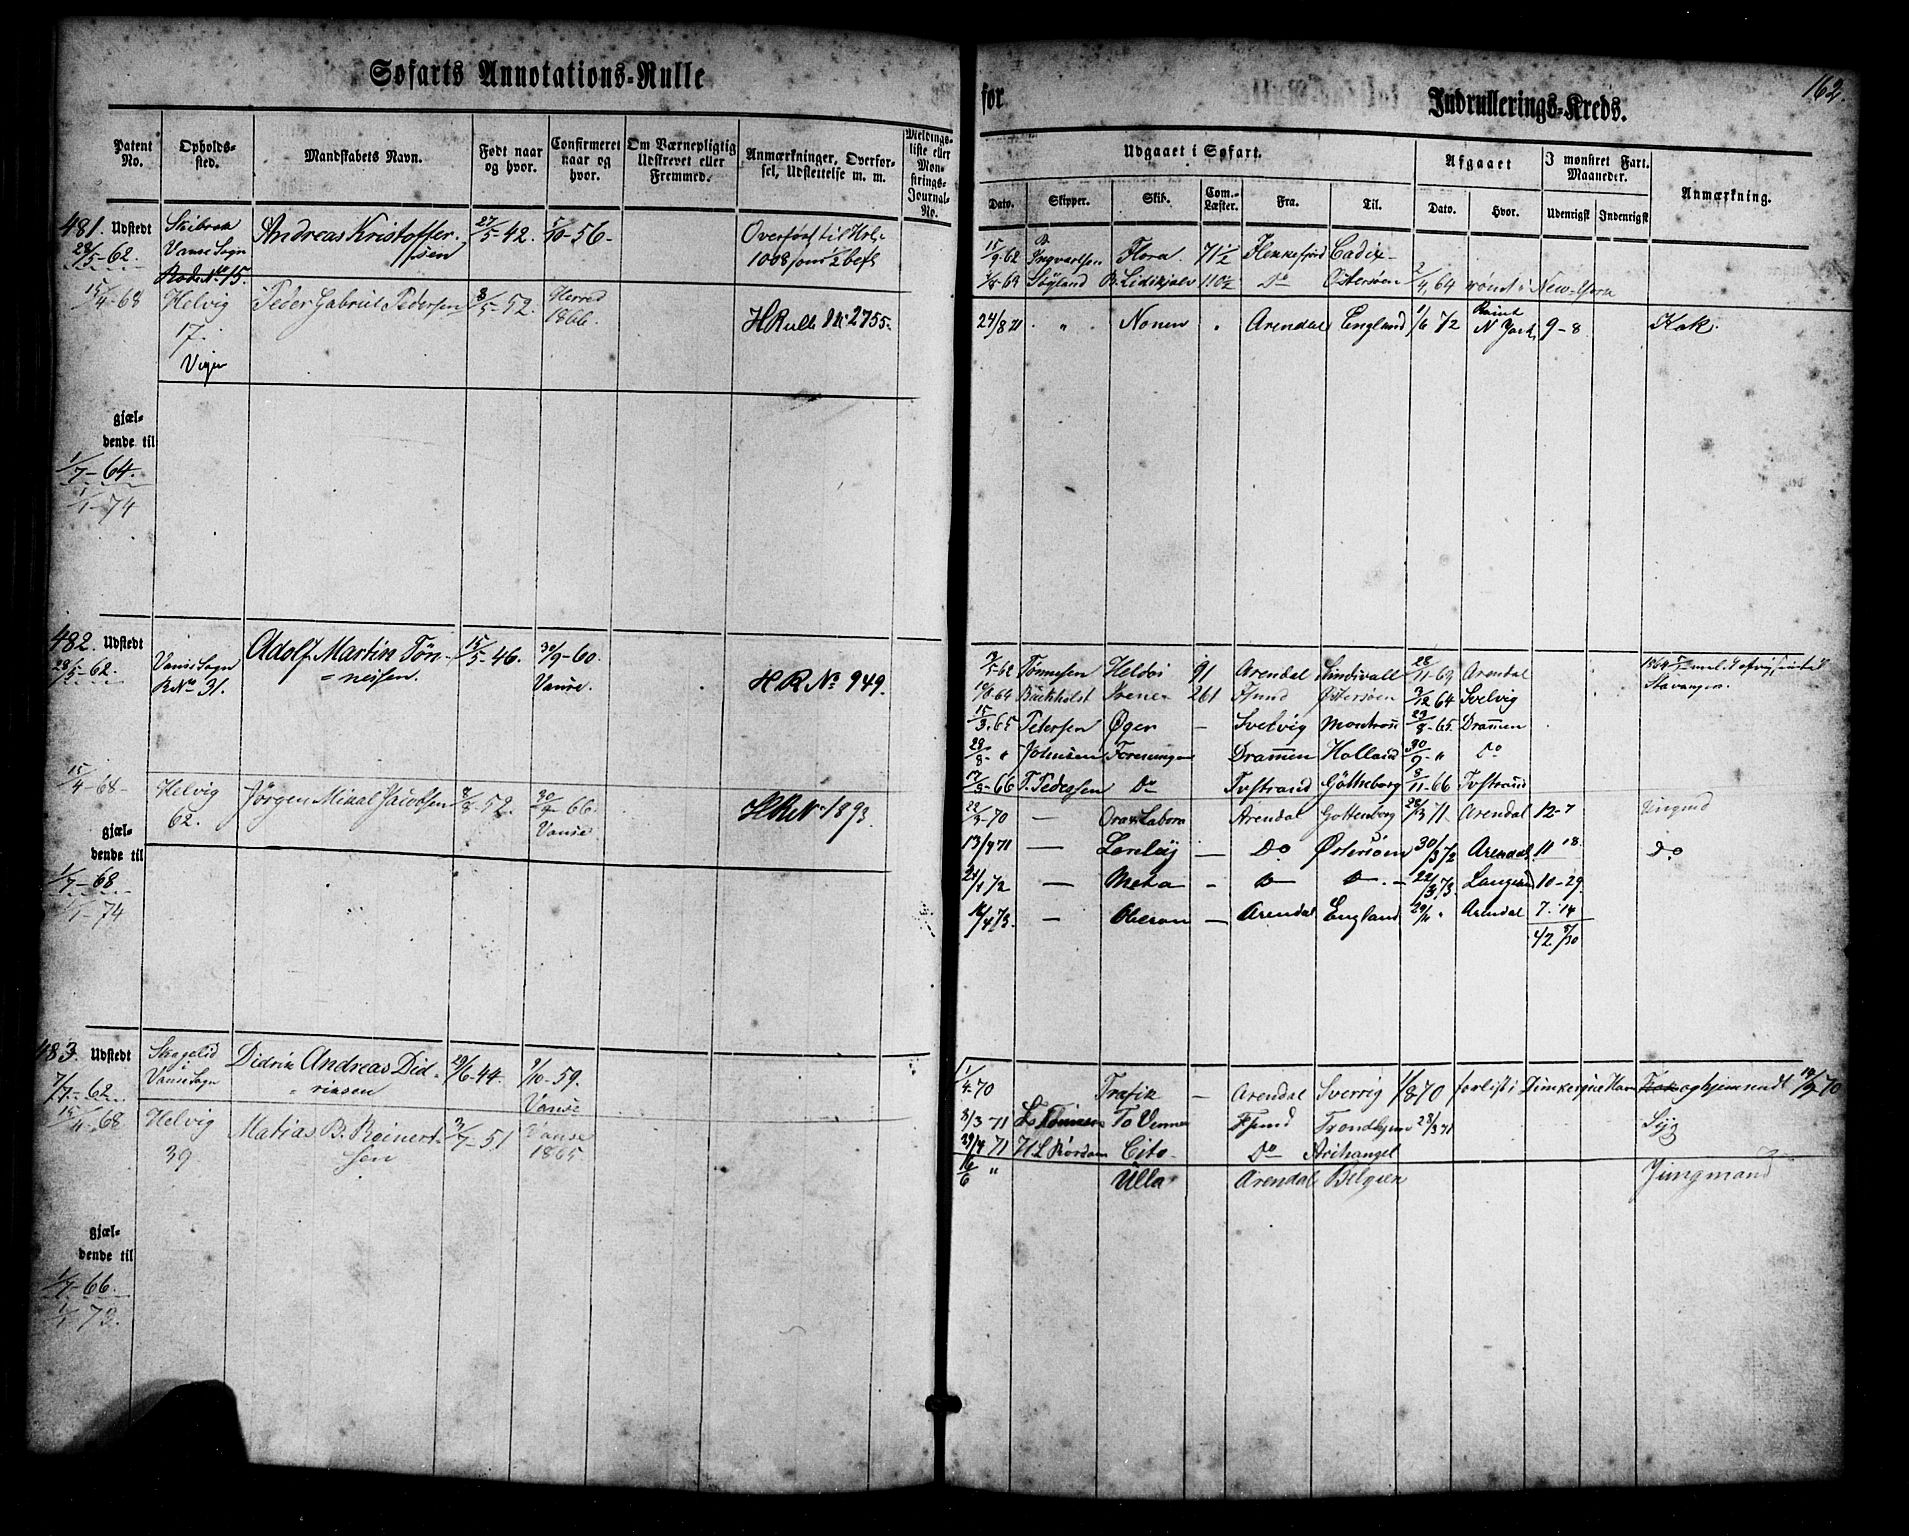 Søfarts Annotations-Rulle
Patent No.
Opholdssted.
Mandskabets Navn.
Født naar og hvor.
Confirmeret naar og hvor.
Om Værnepligtig Udskrevet eller Fremmed.
Anmærkninger, Overførsel, Udslettelse m. m.
Meldingsliste eller Monstrings-Journal-No.
481. Udstedt 28/5-62.
Vanse Sogn
Rode No 15.
Andreas Kristoffersen
27/5-42.
5/10-56-
Overført til Hols
1008 som 1/2 bef.
15/4-68
Helvig
17.
Peder Gabriel Pedersen
8/5-52.
Herred
1866.
H Rulle No 2755.
gjældende til
1/7-64.
1/1-74
482. Udstedt
28/5-62.
Vanse Sogn
R No 31.
Adolf Martin Tönnesen
15/5-46.
30/9-60.
Vanse.
H R No 949.
15/4-68-
Helvig
62.
Jørgen Mikal Jacobsen
8/8-52.
30/9 66-
Vanse
H R No 1893.
gjældende til
1/7-68.
1/1-74
483. Udstedt
7/7-62
Vanse Sogn
Didrik Andreas Didriksen
29/6-44.
9/10-59.
Vanse
15/4-68.
Helvig
39
Matias B. Reinertsen
3/7-51
Vanse
1865
gjældende til
1/7-66.
1/1-73.
for
Indrullerings-Kreds.
162.
Udgaaet i Søfart.
Afgaaet
I monstret Fart. Maaneder.
Anmærkning.
Dato.
Skipper.
Skib.
Com.-Læster.
Fra.
Til.
Dato.
Hvor.
Udenrigst
Indenrigst
15/9-62 Ingvartsen Flora. 71 1/2 Flekkefjord Cadix-
110 1/2 Do Østersøen 2/4 64 rømt i New-York
24/8 71 " Nonen " Arendal England 1/6 72 Rømt N York 9-8 Kok.
Tønnesen 91 Arendal Sundsvall 28/11-63 Arendal
Stavanger.
Buchholdt Irene 261 Østersøen 3/12 64 Svelvig
15/3-65 Petersen Øger - Svelvig 23/8-65 Drammen
28/8-" Johnsen Foreningen Drammen Holland 30/9-" Do
17/3-66 T. Pedersen Do Tvedstrand Götheborg 3/11-66 Tvedstrand
22/3-70 - Ora et Labora Arendal Gottenborg 28/3 71. Arendal 12-7
13/4 71 - Loreley - Do Østersøen 30/3 72 Arendal 11 18. Do
- Meta - Do Do - 22/3 73 10-29
- Oberon - Arendal England 29/11 " Arendal 7-14
42 8/30
1/4 70 Trafik - Arendal Sverrig 1/8 70 forlist i hjemsendt
3/3 71 To Venner Trondhjem 23/3 71 Syg
29/4 71 H L Rørdam Cito- Do Archangel
16/6 " Ulla Arendal Belgien Jungmand